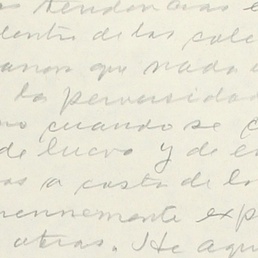 s tendencias e
dentro de las cole
anos que nada
la perversidad
no cuando se c
de lucro y de e
as a costa de lo
rennemente exp
otras. He aqu